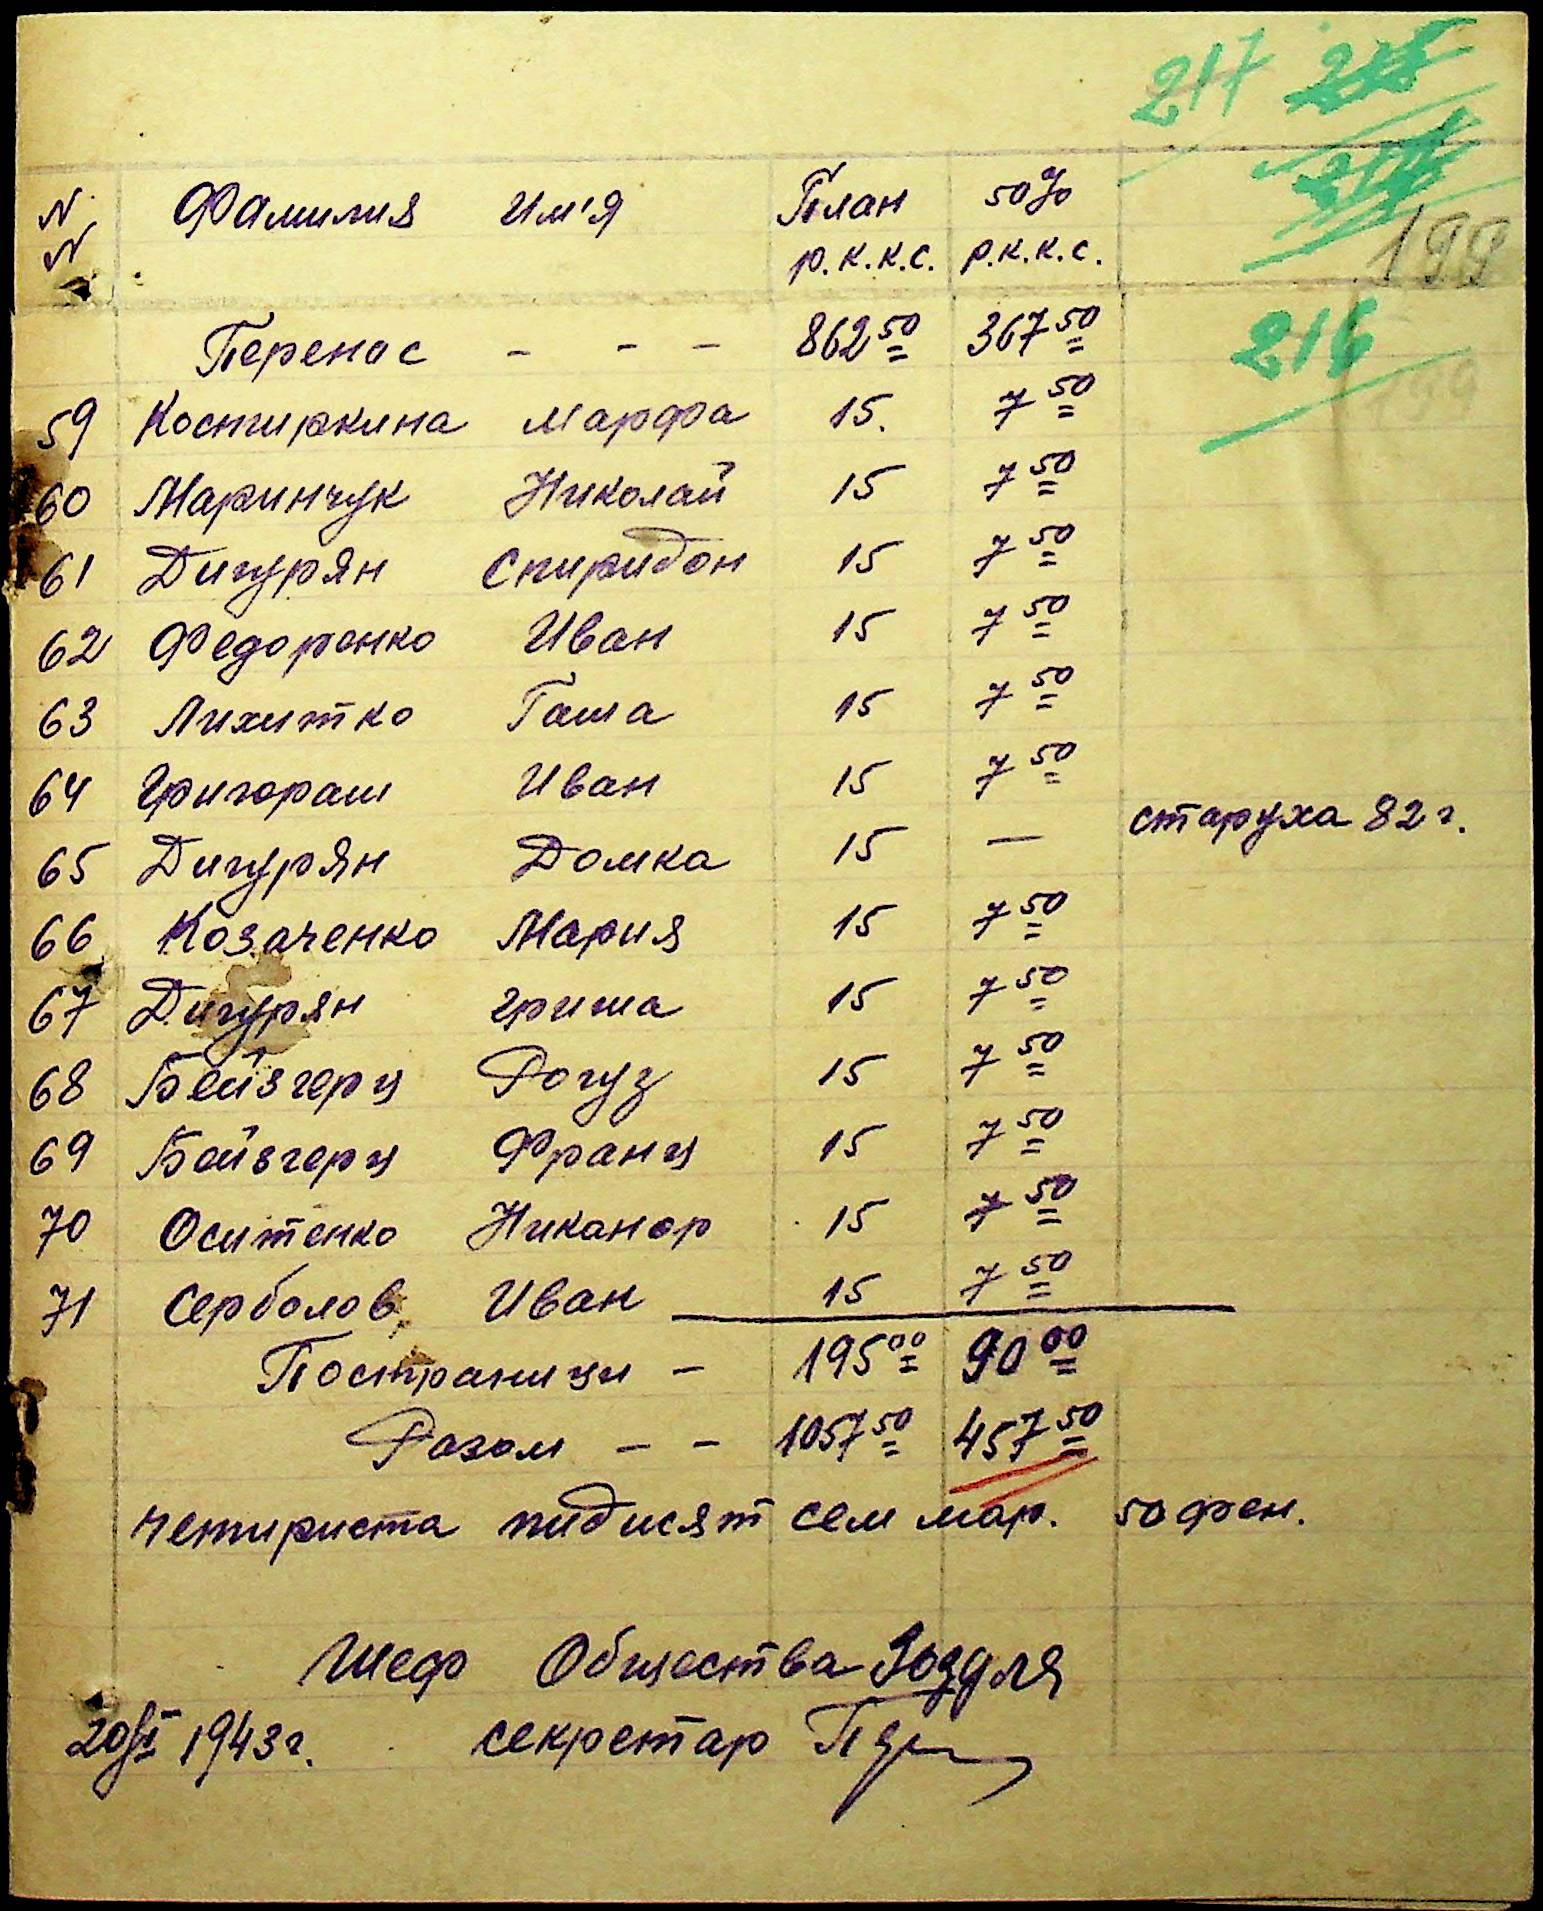 217
199
N Фамилия Им'я План 50%
N р.к.к.с. р.к.к.с.
216
Перенос - - - 862 50 367 50
59 Костиркина Марфа 15. 7 50
60 Маринчук Николай 15 7 50
61 Дигурян Спиридон 15 7 50
62 Федоренко Иван 15 7 50
63 Лихитко Гаша 15 7 50
64 Григораш Иван 15 7 50
65 Дигурян Домка 15 — старуха 82 г.
66 Козаченко Мария 15 7 50
67 Дигурян Гриша 15 7 50
68 Бейзгерц Рогуз 15 7 50
69 Бейзгерц Франц 15 7 50
70 Оситенко Никанор 15 7 50
71 Серболов Иван 15 7 50
Постраници - 195 00 90 00
Разом - - 1057 50 457 50
четириста пидисят сем мар. 50 фен.
Шеф Общества
1943 г. секретар